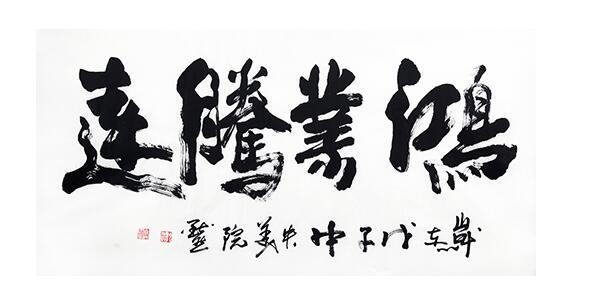 鸿業騰達
歲在戊子中央美院